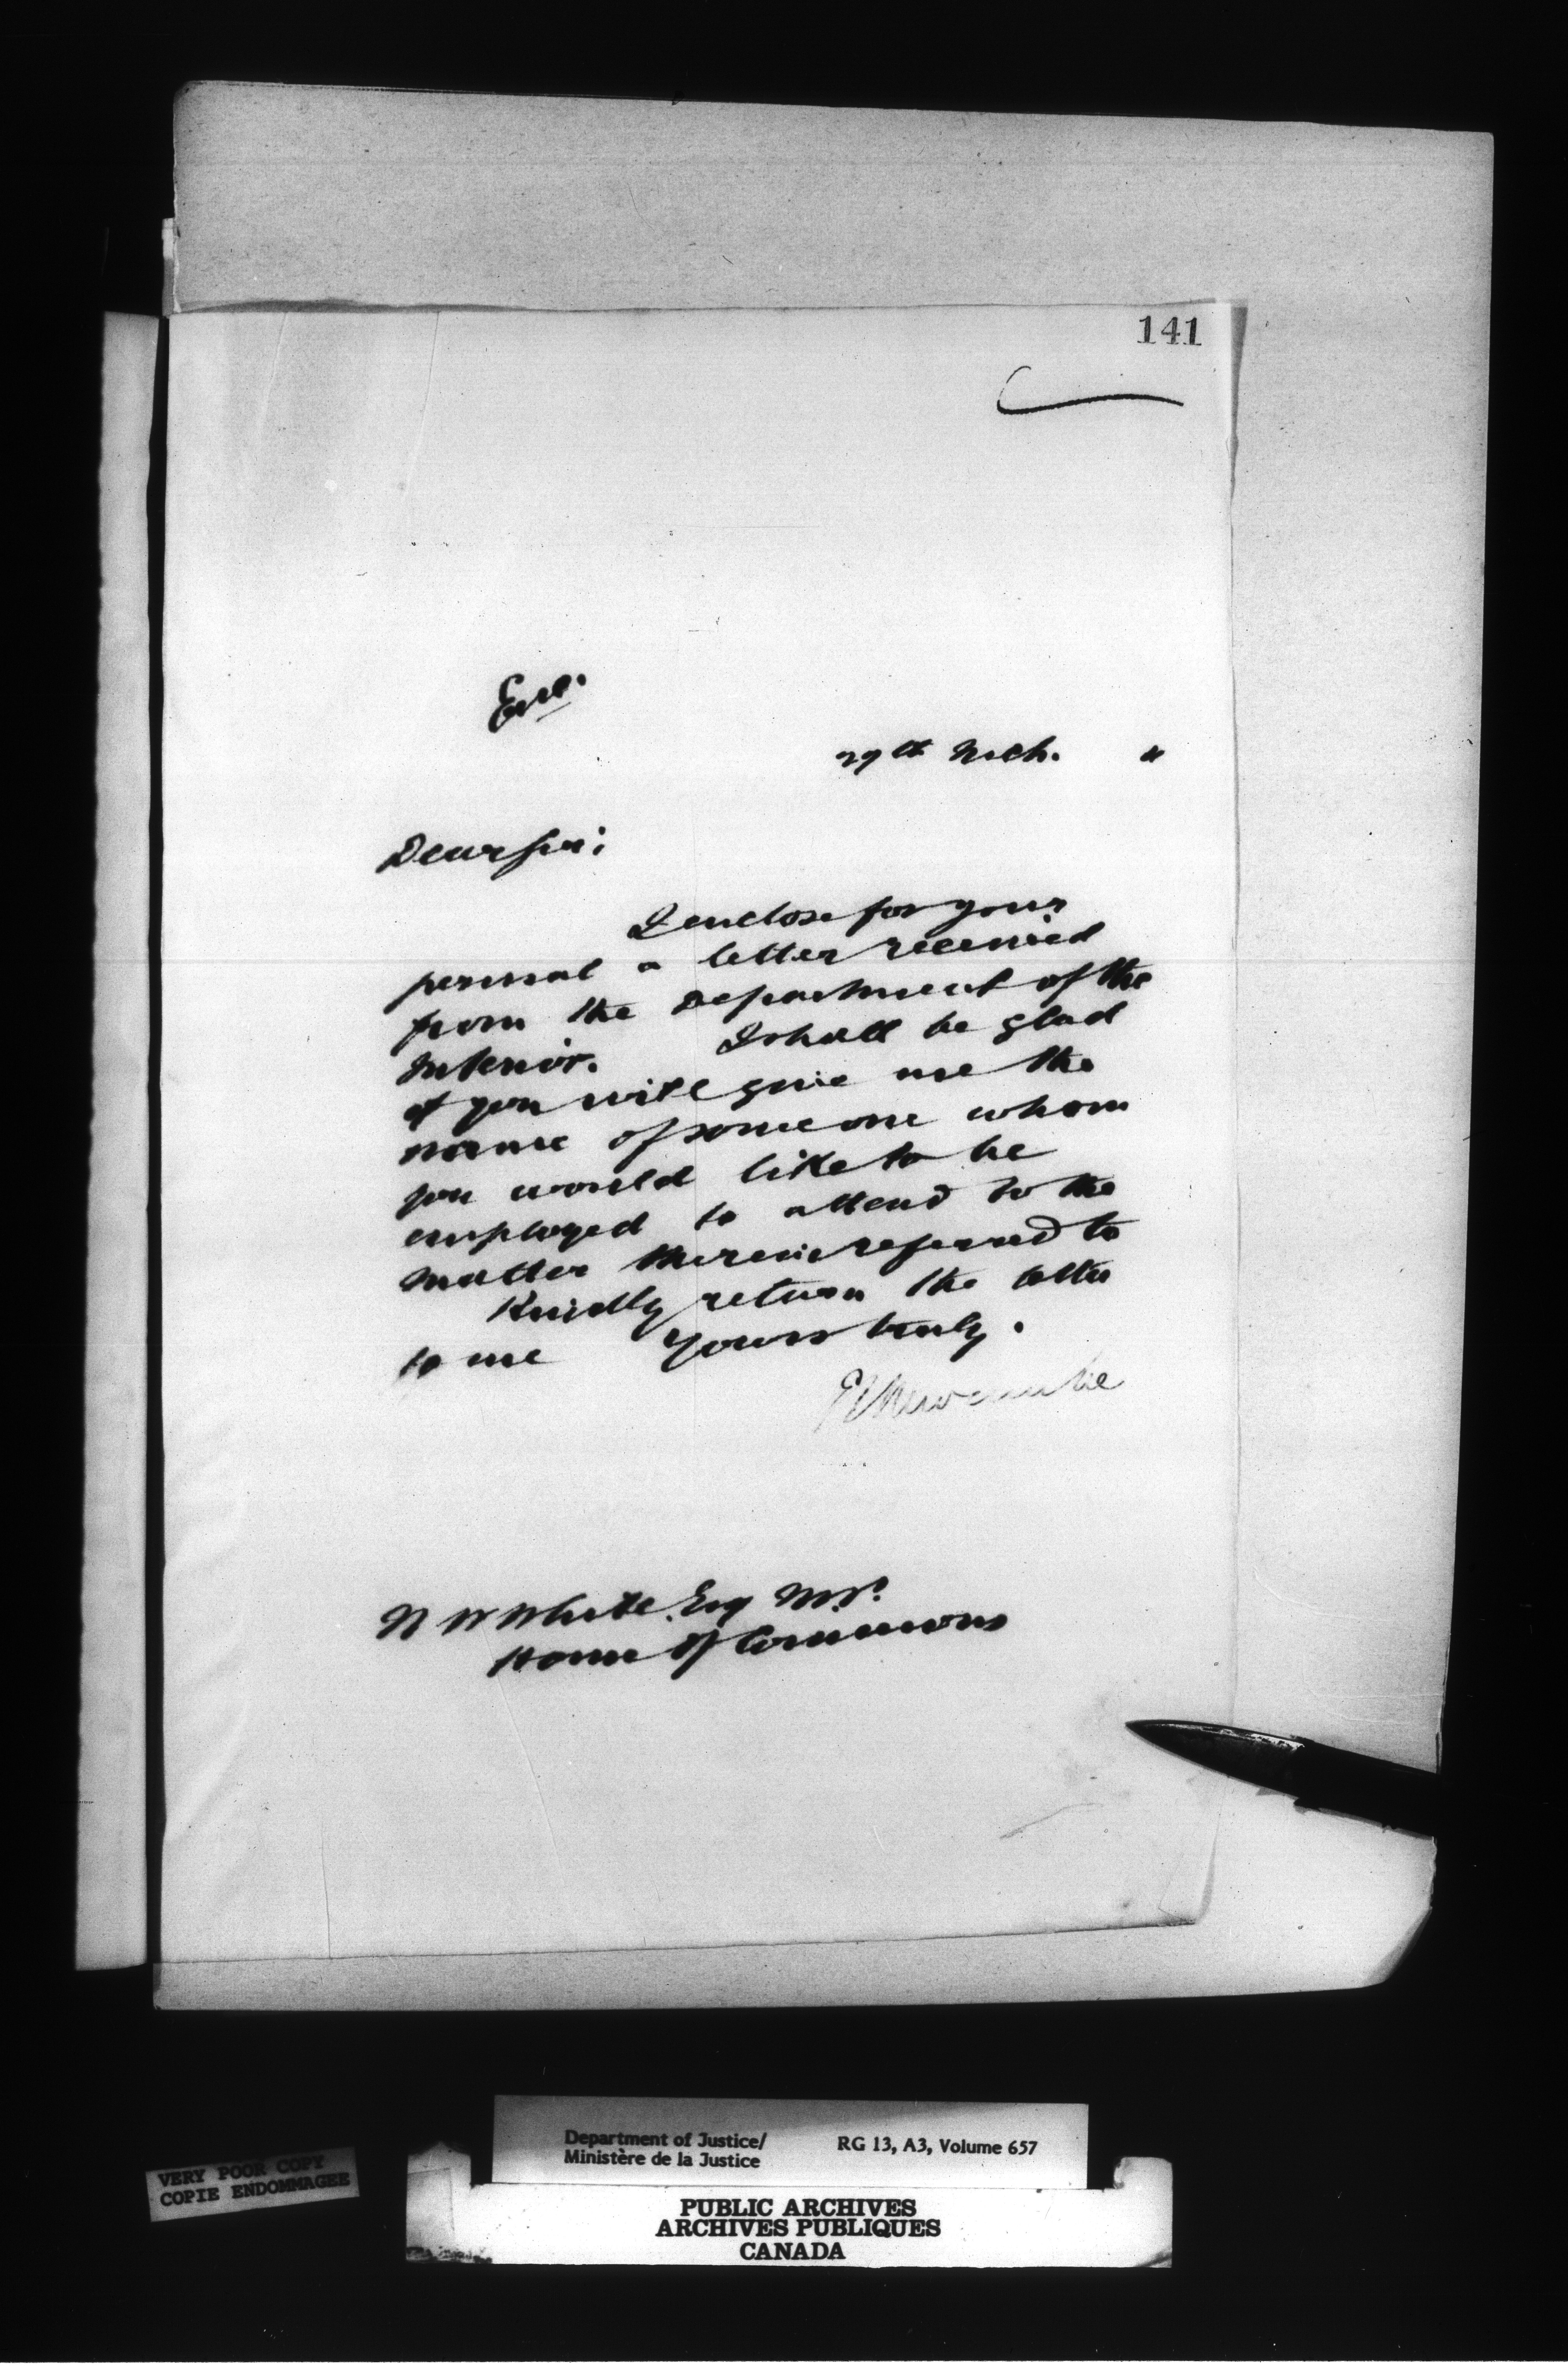 141
Encl.
29th Mch. "
Dear Sir;
I enclose for your
perusal a letter received
from the Department of the
Interior. I shall be glad
if you will give me the
name of some one whom
you would like to be
employed to attend to the
matter therein referred to
Kindly return the letter
to me Yours truly.
Newcombe
N W White. Esq MP.
House Of Commons
Department of Justice/
Ministère de la Justice
RG 13, A3, Volume 657
VERY POOR COPY
COPIE ENDOMMAGEE
PUBLIC ARCHIVES
ARCHIVES PUBLIQUES
CANADA